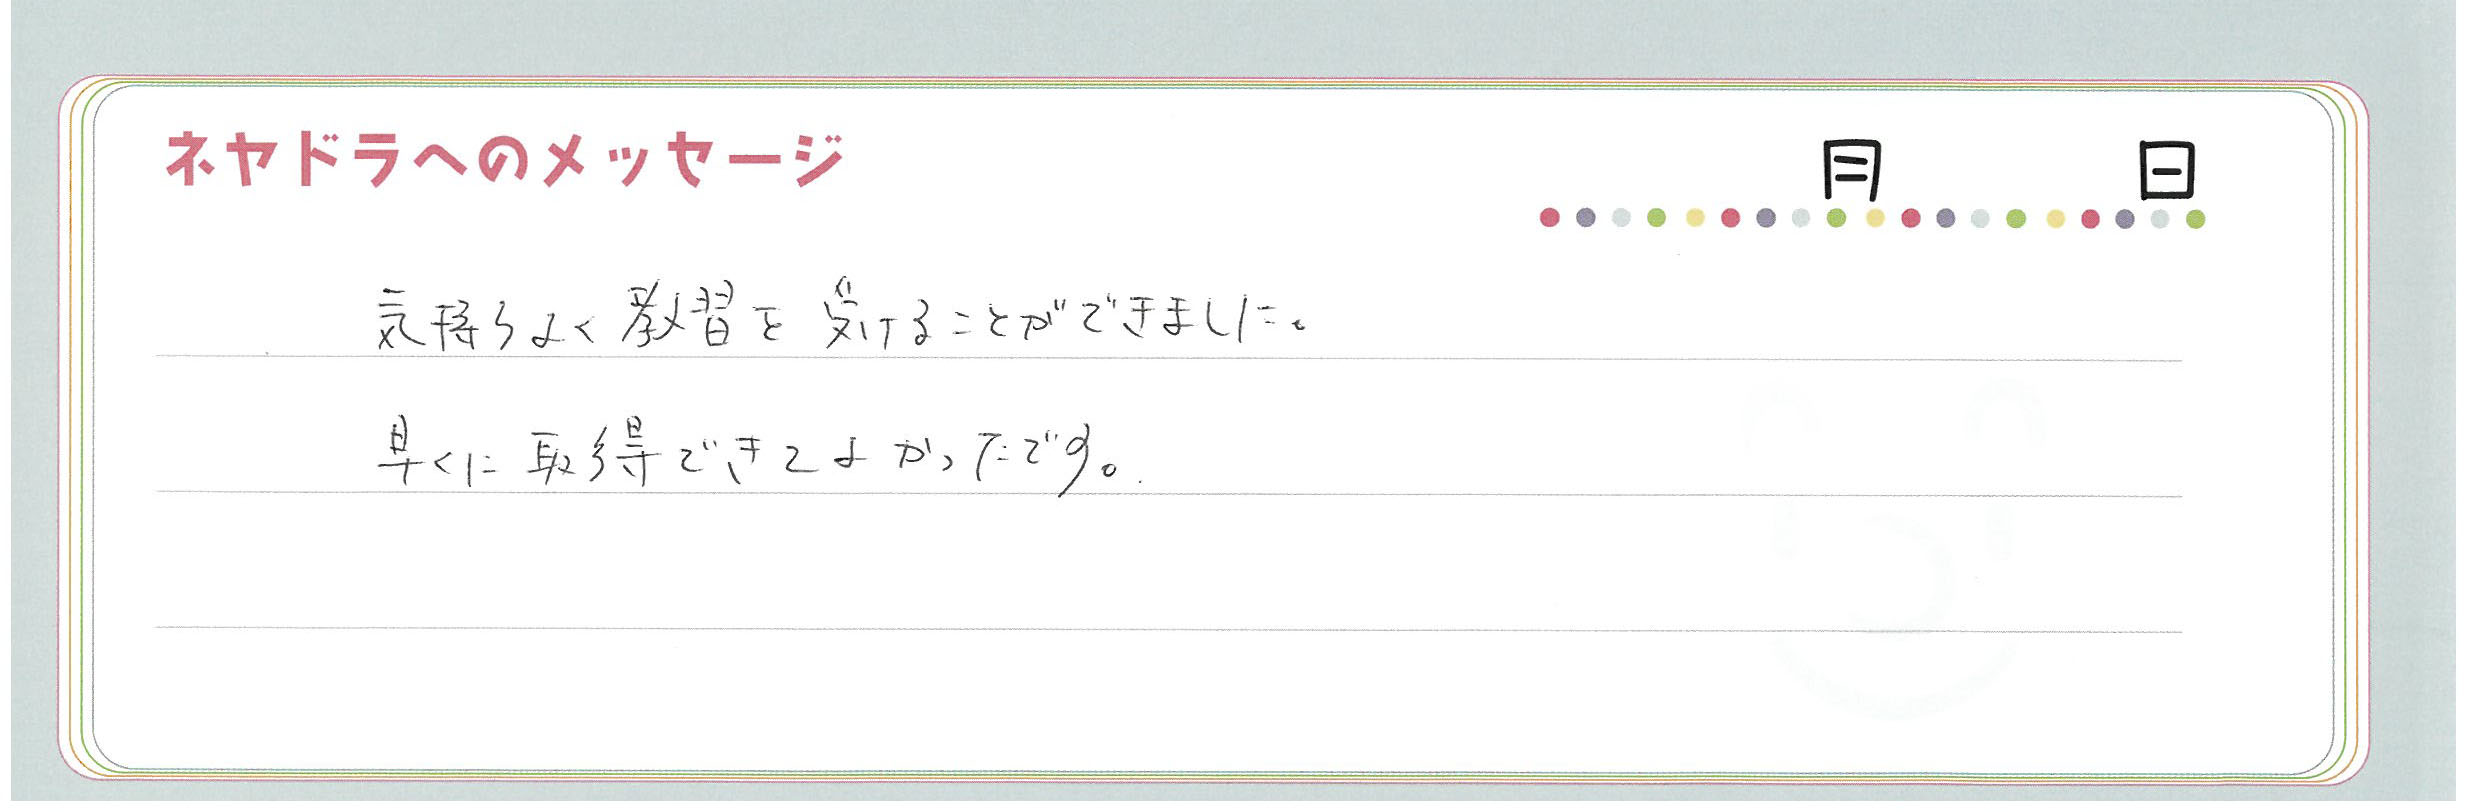 ネヤドラへのメッセージ
月 日
気持ちよく教習を受けることができました。
早くに取得できてよかったです。